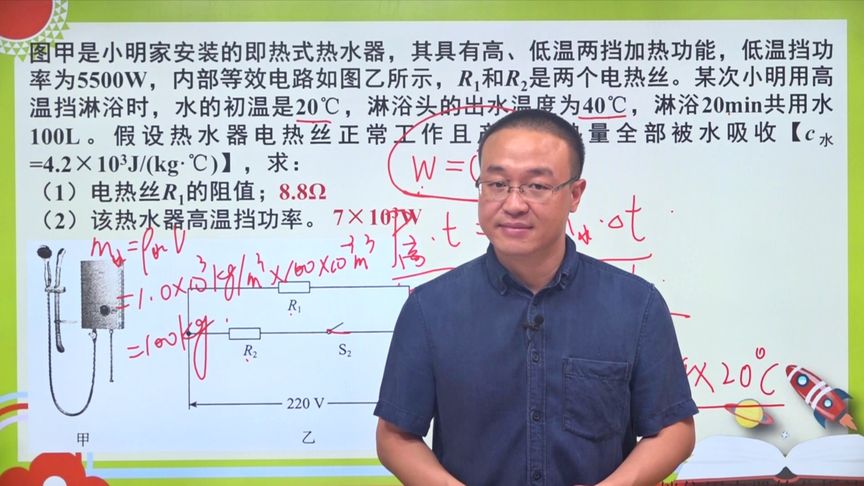 图甲是小明家安装的即热式热水器，其具有高、低温两挡加热功能，低温挡功
率为5500W，内部等效电路如图乙所示，R₁和R₂是两个电热丝。某次小明用高
温挡淋浴时，水的初温是20℃，淋浴头的出水温度为40℃，淋浴20min共用水
100L。假设热水器电热丝正常工作且 量全部被水吸收【c水
=4.2×10³J/(kg·℃)】，求：
W=
（1）电热丝R₁的阻值；8.8Ω
（2）该热水器高温挡功率。7×10³W
m水=ρ水V
P高·t= ·Δt
=1.0×10³kg/m³×100×10⁻³m³
R₁
=100kg
R₂
S₂
×20℃
220 V
甲
乙